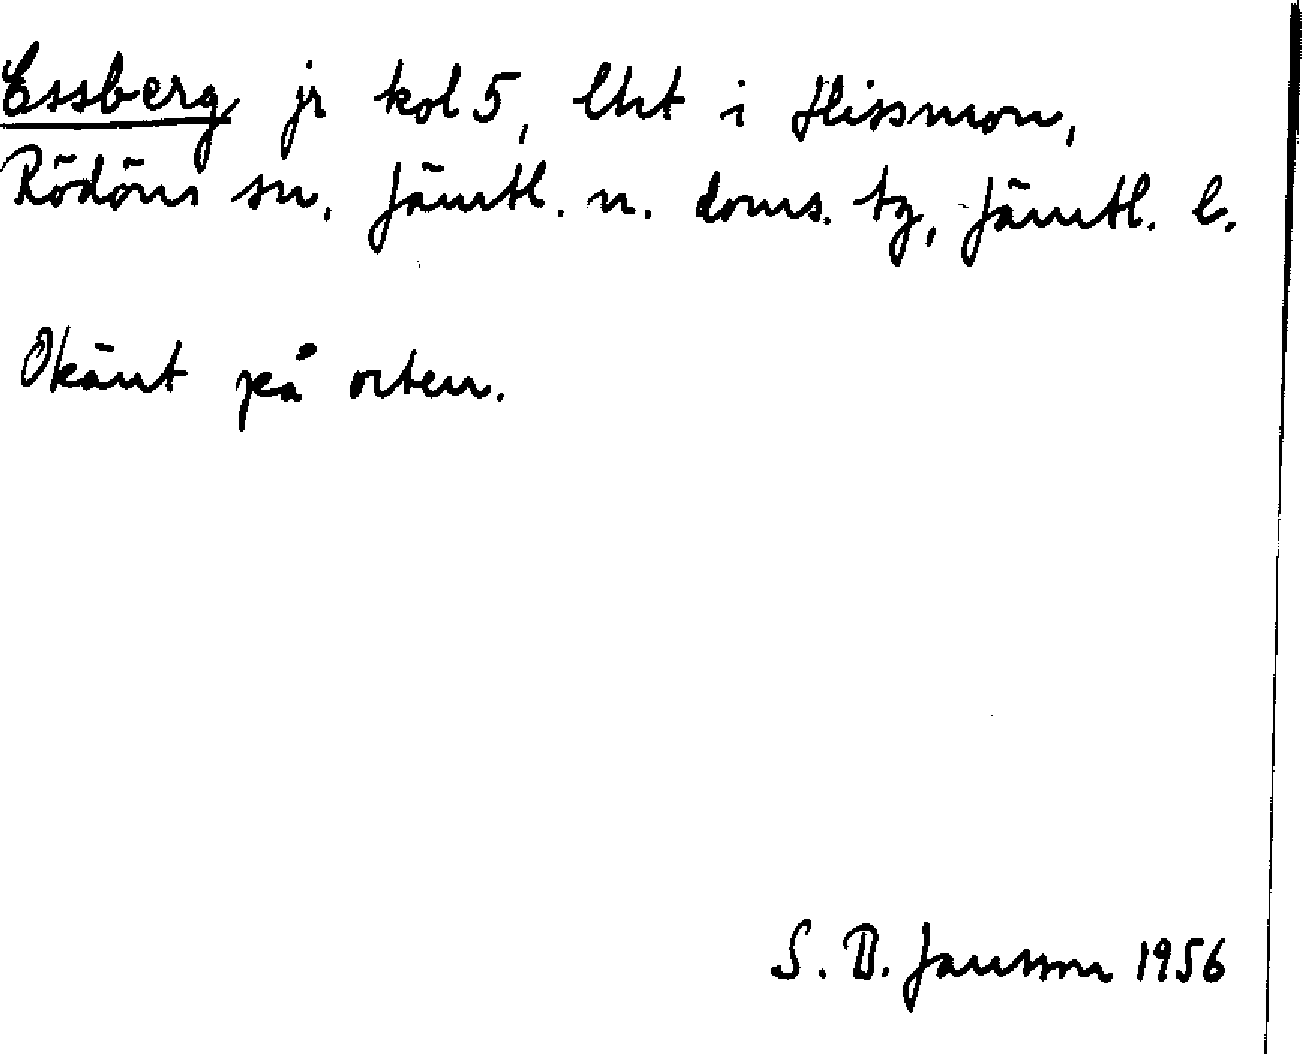 Essberg jr kol 5, lht i Hissmon,
Rödöns sn. Jämtl. n. doms. tg, Jämtl. l.
Okänt på orten.
S. B. Jansson 1956